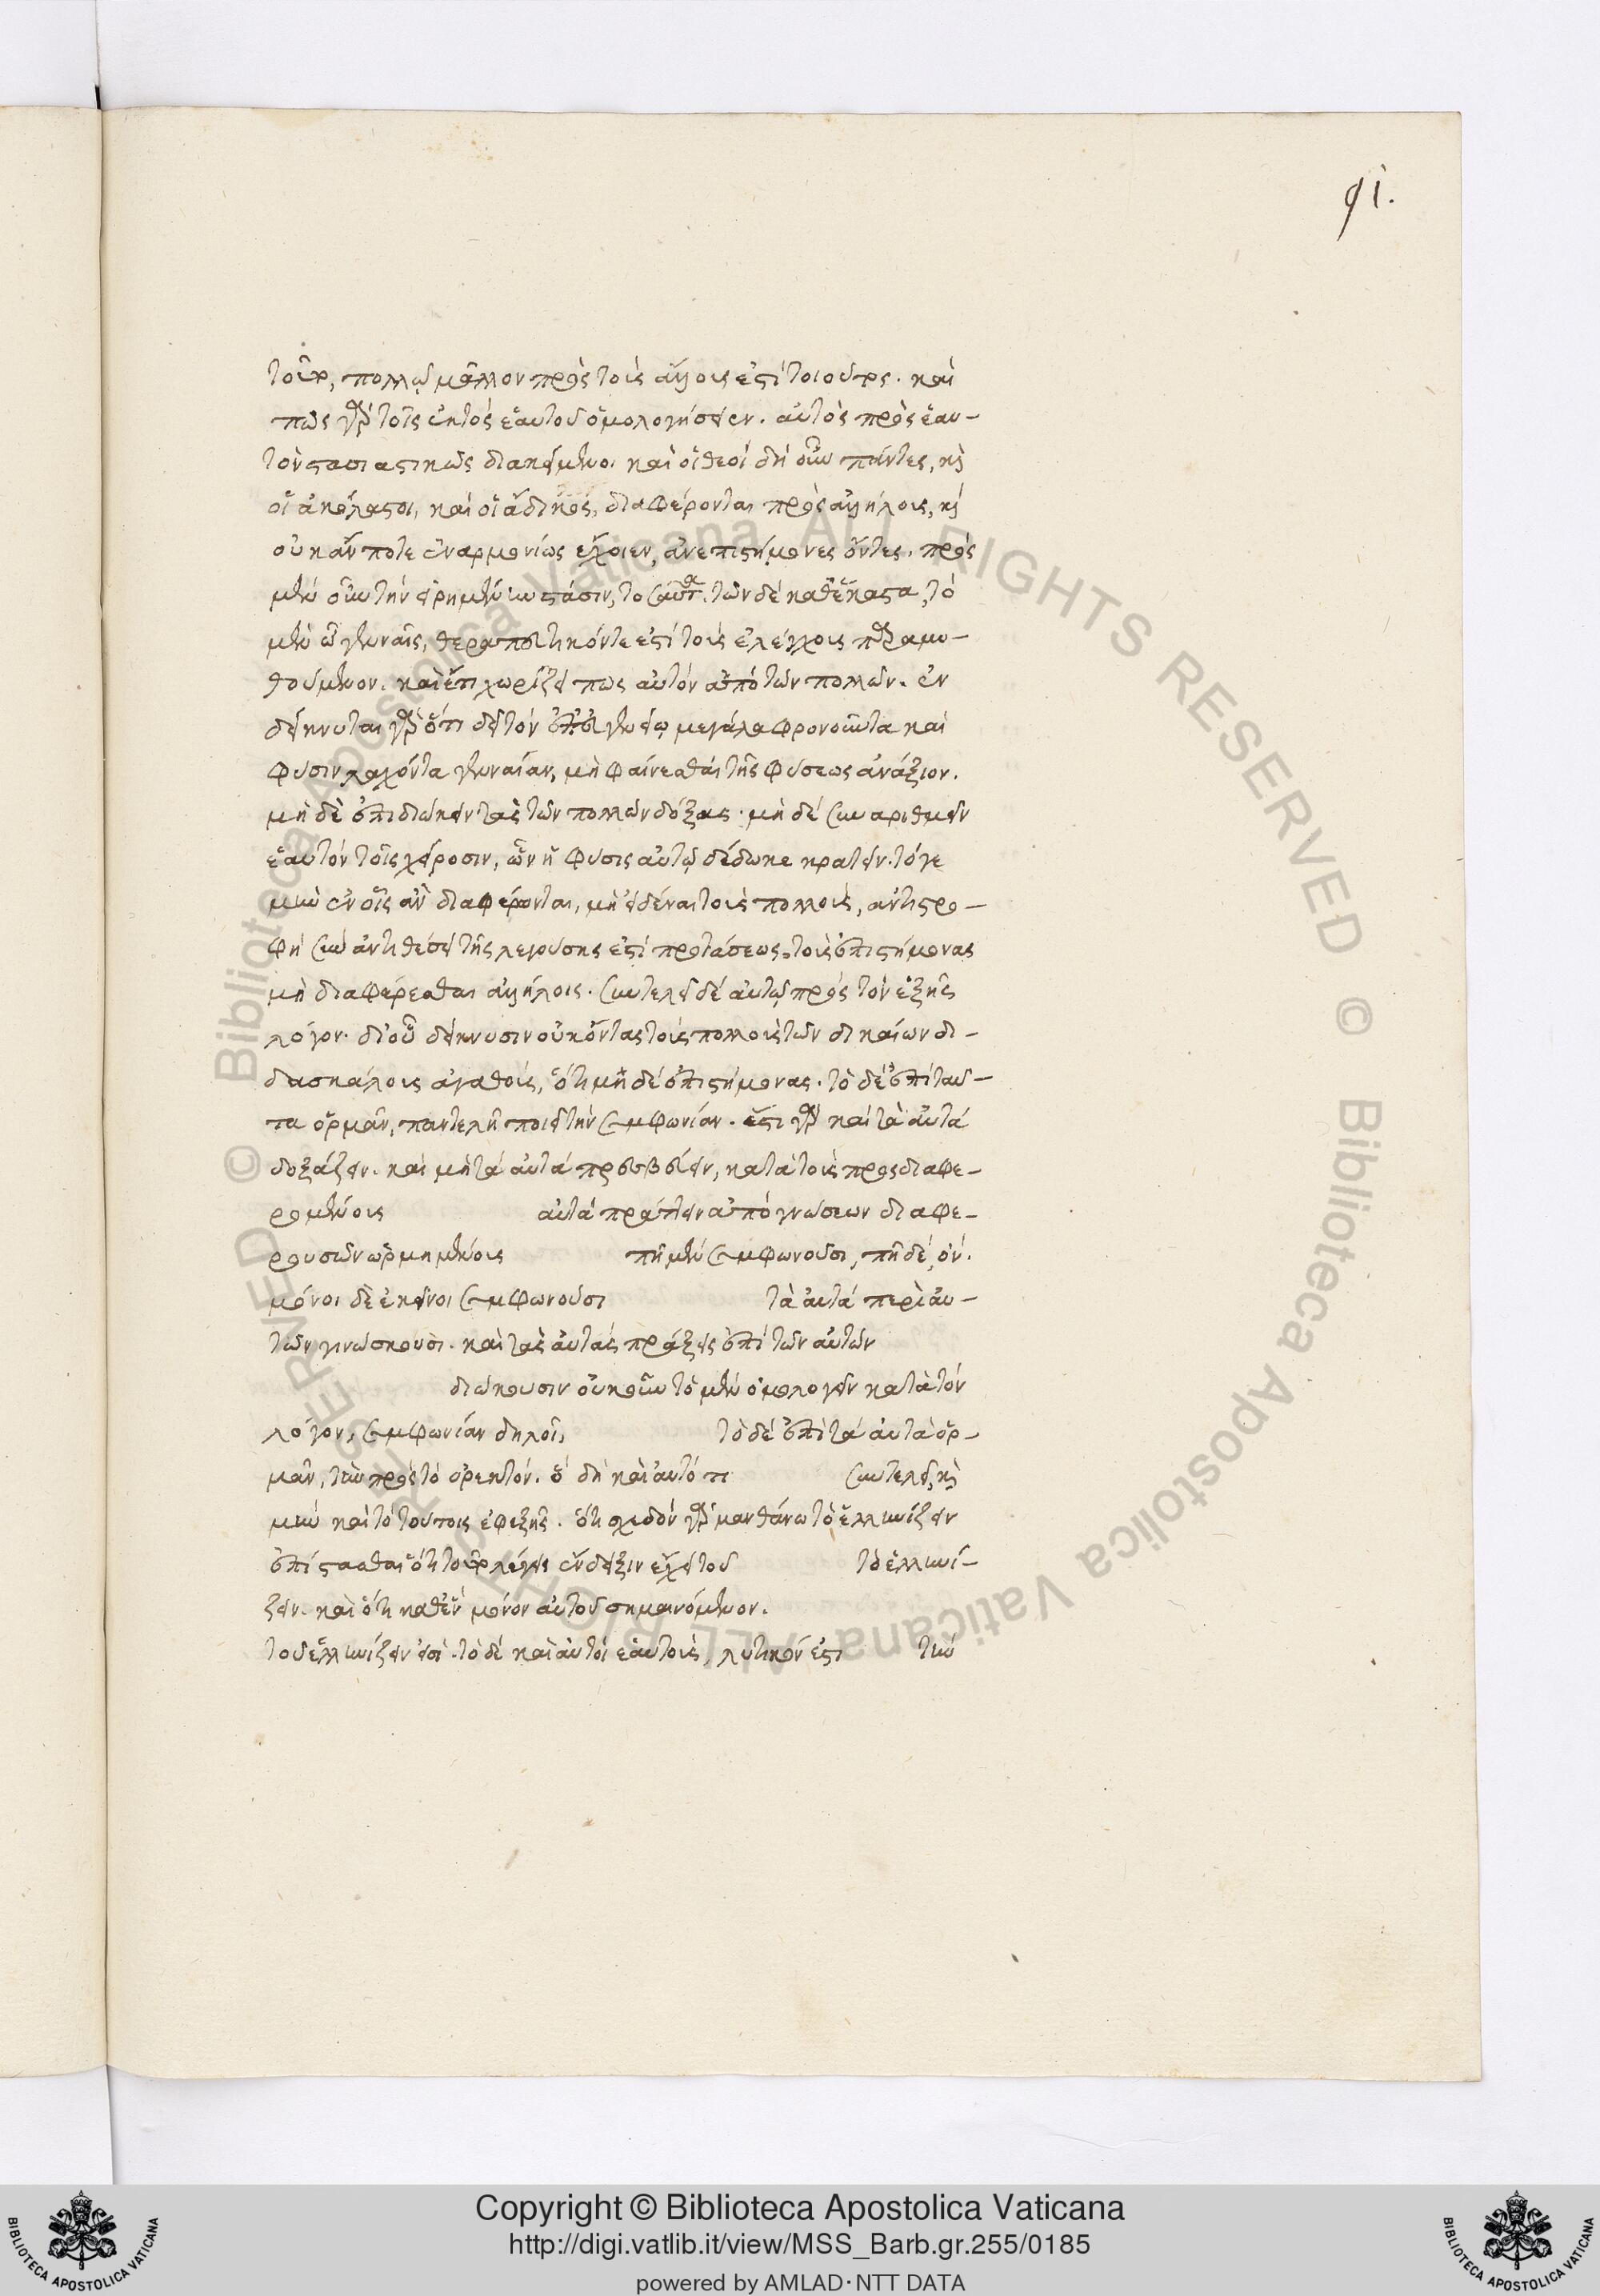 91.
τοῦτον, πολλῷ μᾶλλον πρὸς τοὺς ἄλλους ἐστὶ τοιοῦτος. καὶ
πῶς γὰρ τοῖς ἐκτὸς ἑαυτοῦ ὁμολογήσειεν. αὐτὸς πρὸς ἑαυ-
τὸν στασιαστικῶς διακείμενος καὶ οἱ θεοὶ δὴ οὖν πάντες, καὶ
οἱ ἀκόλαστοι, καὶ οἱ ἄδικοι, διαφέρονται πρὸς ἀλλήλους, καὶ
οὐκ ἄν ποτε ἐναρμονίως ἔχοιεν, ἀνεπιστήμονες ὄντες. πρὸς
μὲν οὖν τὴν εἰρημένην στάσιν, τοσαῦτα. τῶν δὲ καθέκαστα, τὸ
μὲν ὦ γενναῖε, θεραπευτικόν τε ἐστὶ τοῖς ἐλέγχοις παραμυ-
θούμενον. καὶ ἔτι χωρίζει πως αὐτὸν ἀπὸ τῶν πολλῶν. ἐν
δείκνυται γὰρ ὅτι δεῖ τὸν ἐπ' εὐγενείᾳ μεγάλα φρονοῦντα καὶ
φύσιν λαχόντα γενναίαν, μὴ φαίνεσθαι τῆς φύσεως ἀνάξιον.
μὴ δὲ ἐπιδιώκειν τὰς τῶν πολλῶν δόξας. μὴ δὲ συναριθμεῖν
ἑαυτὸν τοῖς χείροσιν, ὧν ἡ φύσις αὐτῷ δέδωκε κρατεῖν. τό γε
μὴν ἐν οἷς ἂν διαφέρονται, μὴ εἰδέναι τοὺς πολλοὺς, ἀντιστρο-
φὴ σὺν ἀντιθέσει τῆς λεγούσης ἐστὶ προτάσεως, τοὺς ἐπιστήμονας
μὴ διαφέρεσθαι ἀλλήλοις. συντελεῖ δὲ αὐτῷ πρὸς τὸν ἑξῆς
λόγον. δι' οὗ δείκνυσιν οὐκ ὄντας τοὺς πολλοὺς τῶν δικαίων δι-
δασκάλους ἀγαθοὺς, ὅτι μὴ δὲ ἐπιστήμονας. τὸ δὲ ἐπὶ ταῦ-
τα ὁρμᾶν, παντελῆ ποιεῖ τὴν συμφωνίαν. ἔστι γὰρ καὶ τὰ αὐτὰ
δοξάζειν. καὶ μὴ τὰ αὐτὰ πρεσβεύειν, κατὰ τοὺς προσδιαφε-
ρομένους αὐτὰ πράττειν ἀπὸ γνώσεων διαφε-
ρουσῶν ὡρμημένοις πῆ μὲν συμφωνοῦσι, πῆ δὲ, οὔ.
μόνοι δὲ ἐκεῖνοι συμφωνοῦσι τὰ αὐτὰ περὶ αὐ-
τῶν γινώσκουσι. καὶ τὰς αὐτὰς πράξεις ἐπὶ τῶν αὐτῶν
διώκουσιν οὐκοῦν τὸ μὲν ὁμολογεῖν κατὰ τὸν
λόγον, συμφωνίαν δηλοῖ, τὸ δὲ ἐπὶ τὰ αὐτὰ ὁρ-
μᾶν, τὴν πρὸς τὸ ὀρεκτόν. ὃ δὴ καὶ αὐτό τι συντελεῖ, καὶ
μὴν καὶ τὸ τούτοις ἐφεξῆς. ὅτι σχεδὸν γὰρ μανθάνω τὸ ἑλληνίζειν
ἐπίστασθαι ὅτι τοῦτον λέγει ἔνδειξιν ἔχει τοῦ τὸ ἑλληνί-
ζειν. καὶ ὅτι καθ' ἓν μόνον αὐτοῦ σημαινόμενον.
τοῦ ἑλληνίζειν ἐστί. τὸ δὲ καὶ αὐτοὶ ἑαυτοὺς, λυτικόν ἐστι τὴν
Copyright © Biblioteca Apostolica Vaticana
http://digi.vatlib.it/view/MSS_Barb.gr.255/0185
powered by AMLAD·NTT DATA